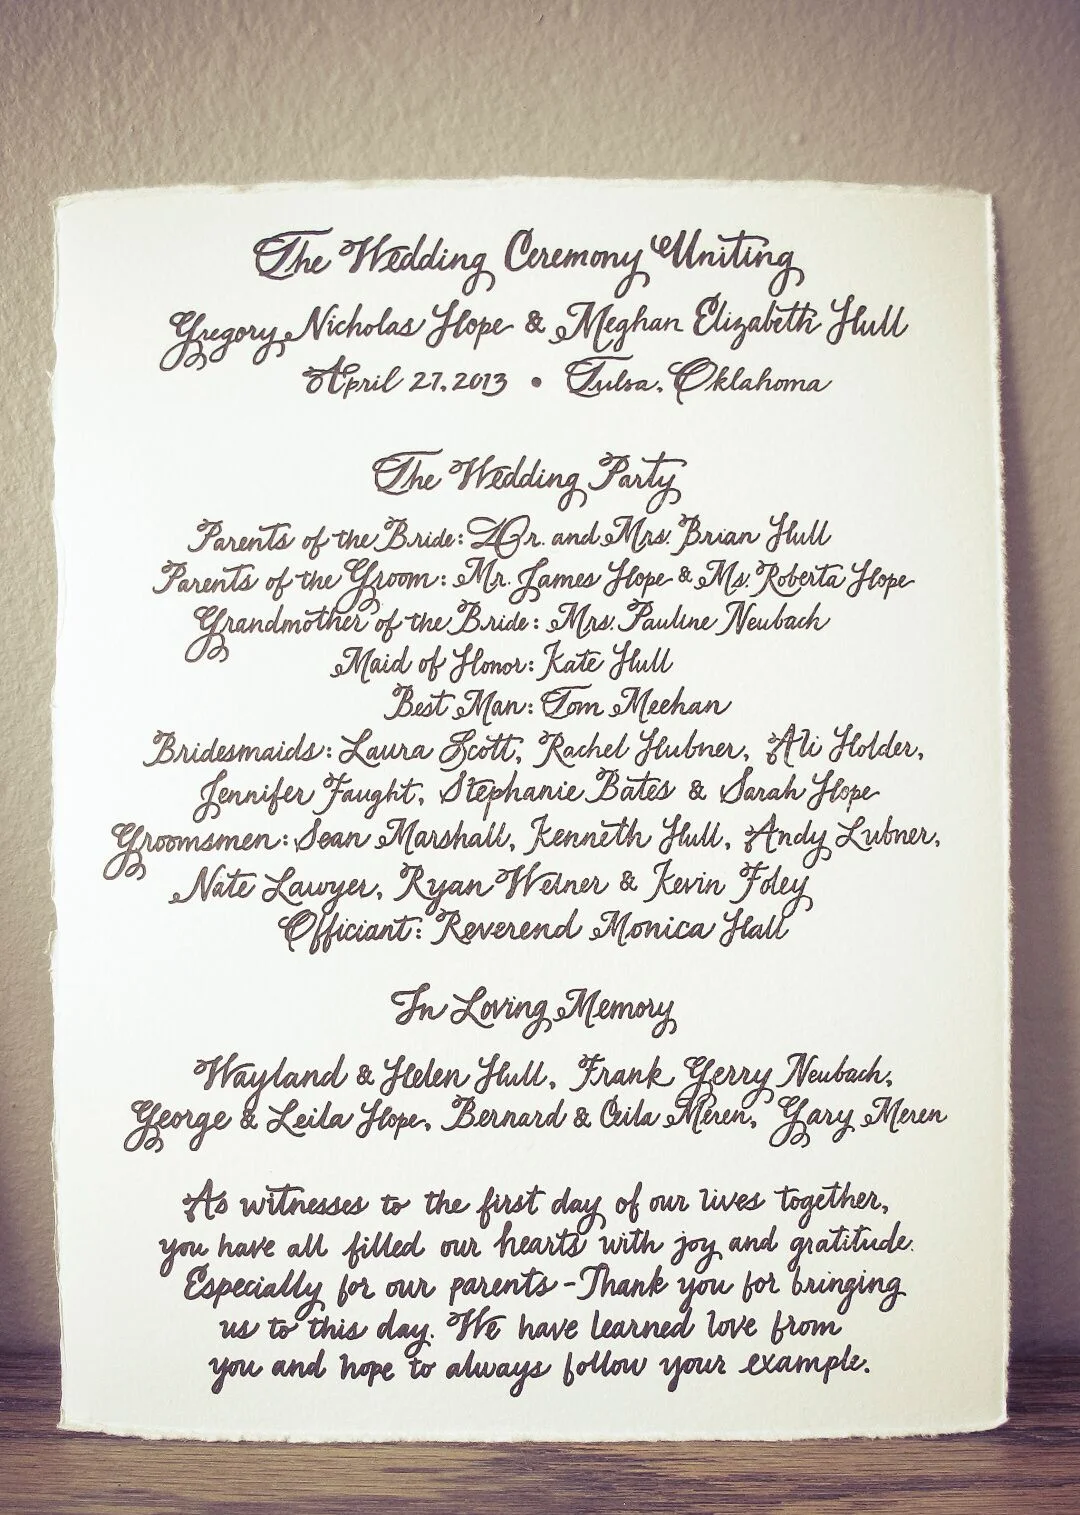 The Wedding Ceremony Uniting
Gregory Nicholas Hope & Meghan Elizabeth Hull
April 27, 2013 • Tulsa, Oklahoma
The Wedding Party
Parents of the Bride: Dr. and Mrs. Brian Hull
Parents of the Groom: Mr. James Hope & Ms. Roberta Hope
Grandmother of the Bride: Mrs. Pauline Neubach
Maid of Honor: Kate Hull
Best Man: Tom Meehan
Bridesmaids: Laura Scott, Rachel Hubner, Ali Holder,
Jennifer Faught, Stephanie Bates & Sarah Hope
Groomsmen: Sean Marshall, Kenneth Hull, Andy Lubner,
Nate Lawyer, Ryan Weiner & Kevin Foley
Officiant: Reverend Monica Hall
In Loving Memory
Wayland & Helen Hull, Frank Gerry Neubach,
George & Leila Hope, Bernard & Ceila Meren, Gary Meren
As witnesses to the first day of our lives together,
you have all filled our hearts with joy and gratitude.
Especially for our parents - Thank you for bringing
us to this day. We have learned love from
you and hope to always follow your example.